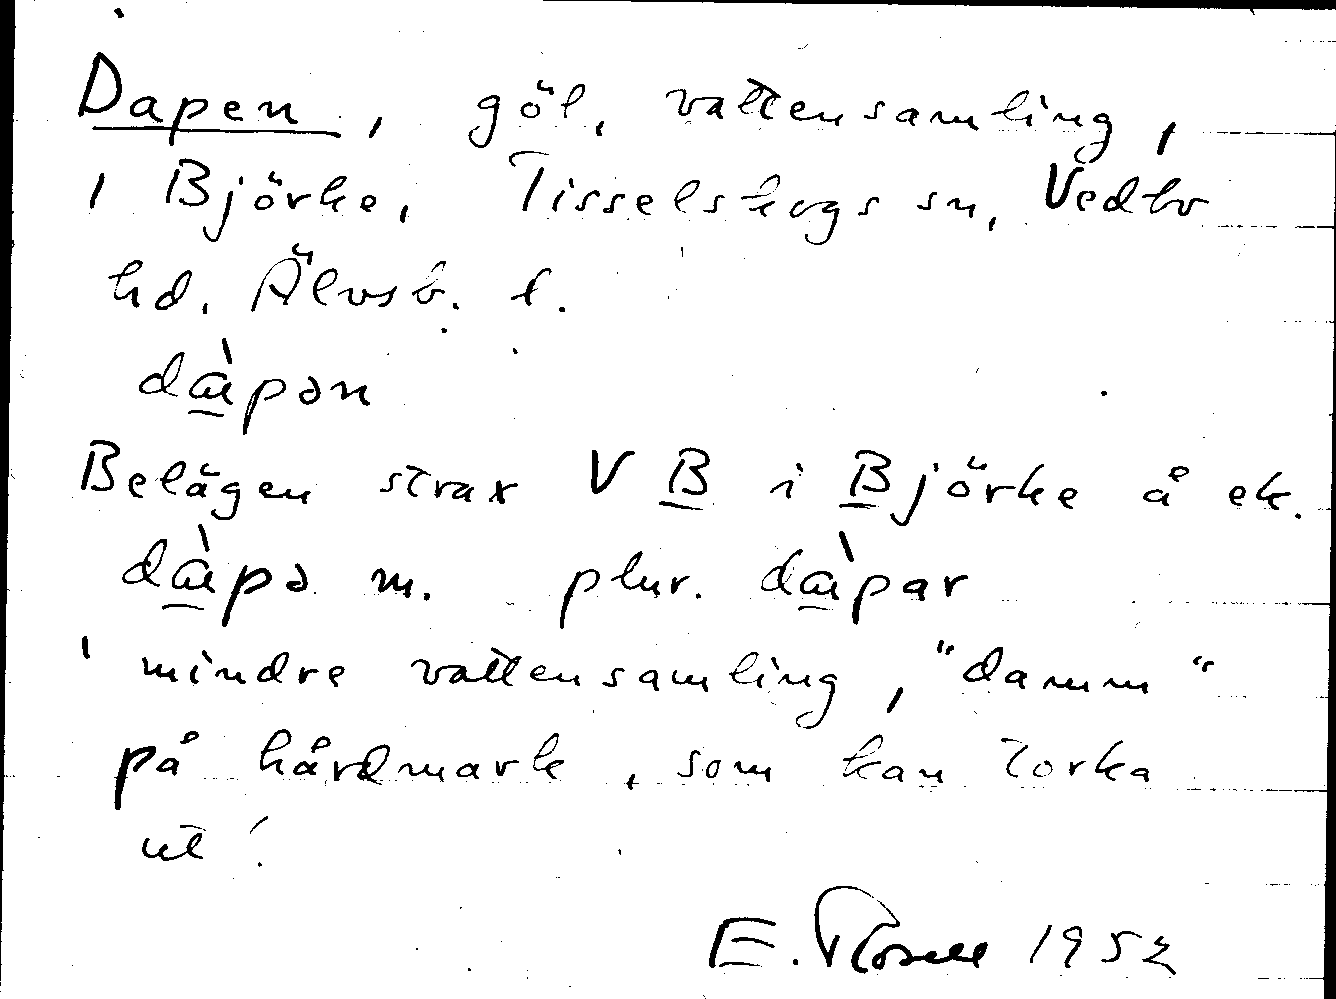 Dapen, göl, vattensamling,
i Björke, Tisselskogs sn, Vedbo
hd. Älvsb. l.
dɑ̀pən
Belägen strax V B i Björke å ek.
dɑ̀pə m. plur. dɑ̀par
' mindre vattensamling, "damm"
på hårdmark, som kan torka
ut'.
E. Rosell 1952